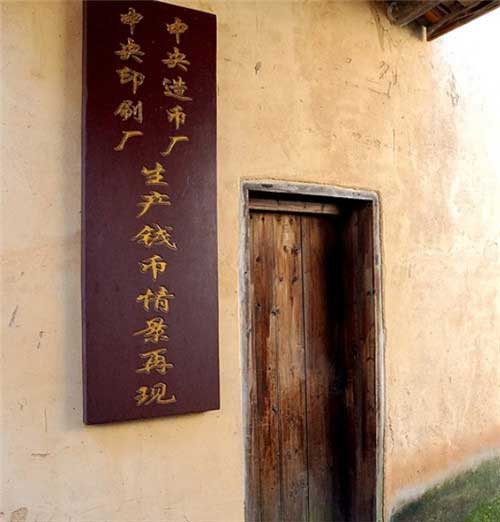 中央造币厂
中央印刷厂
生产钱币情景再现